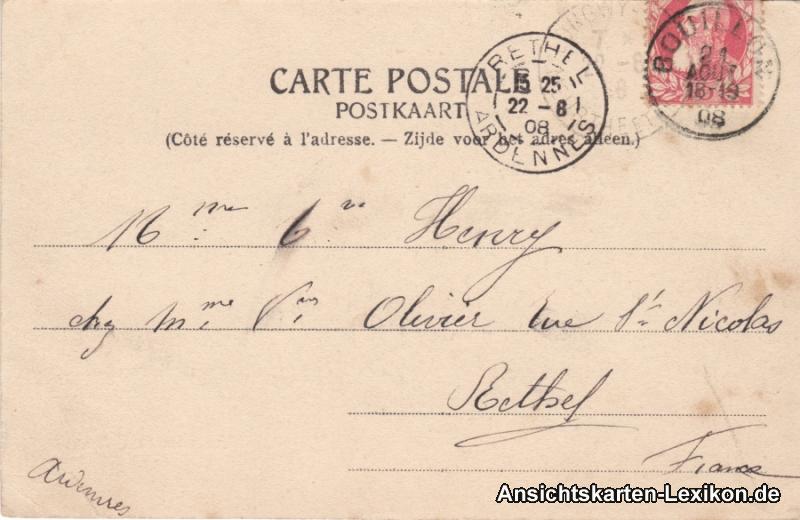 CARTE POSTALE
POSTKAART
(Côté réservé à l'adresse. — Zijde voor het adres alleen.)
RETHEL
15 25
22 - 8
08
ARDENNES
BOUILLON
21
AOUT
18-19
08
Mme Vve Henry
chez Mme Vve Olivier rue St Nicolas
Rethel
France
Ardennes
Ansichtskarten-Lexikon.de